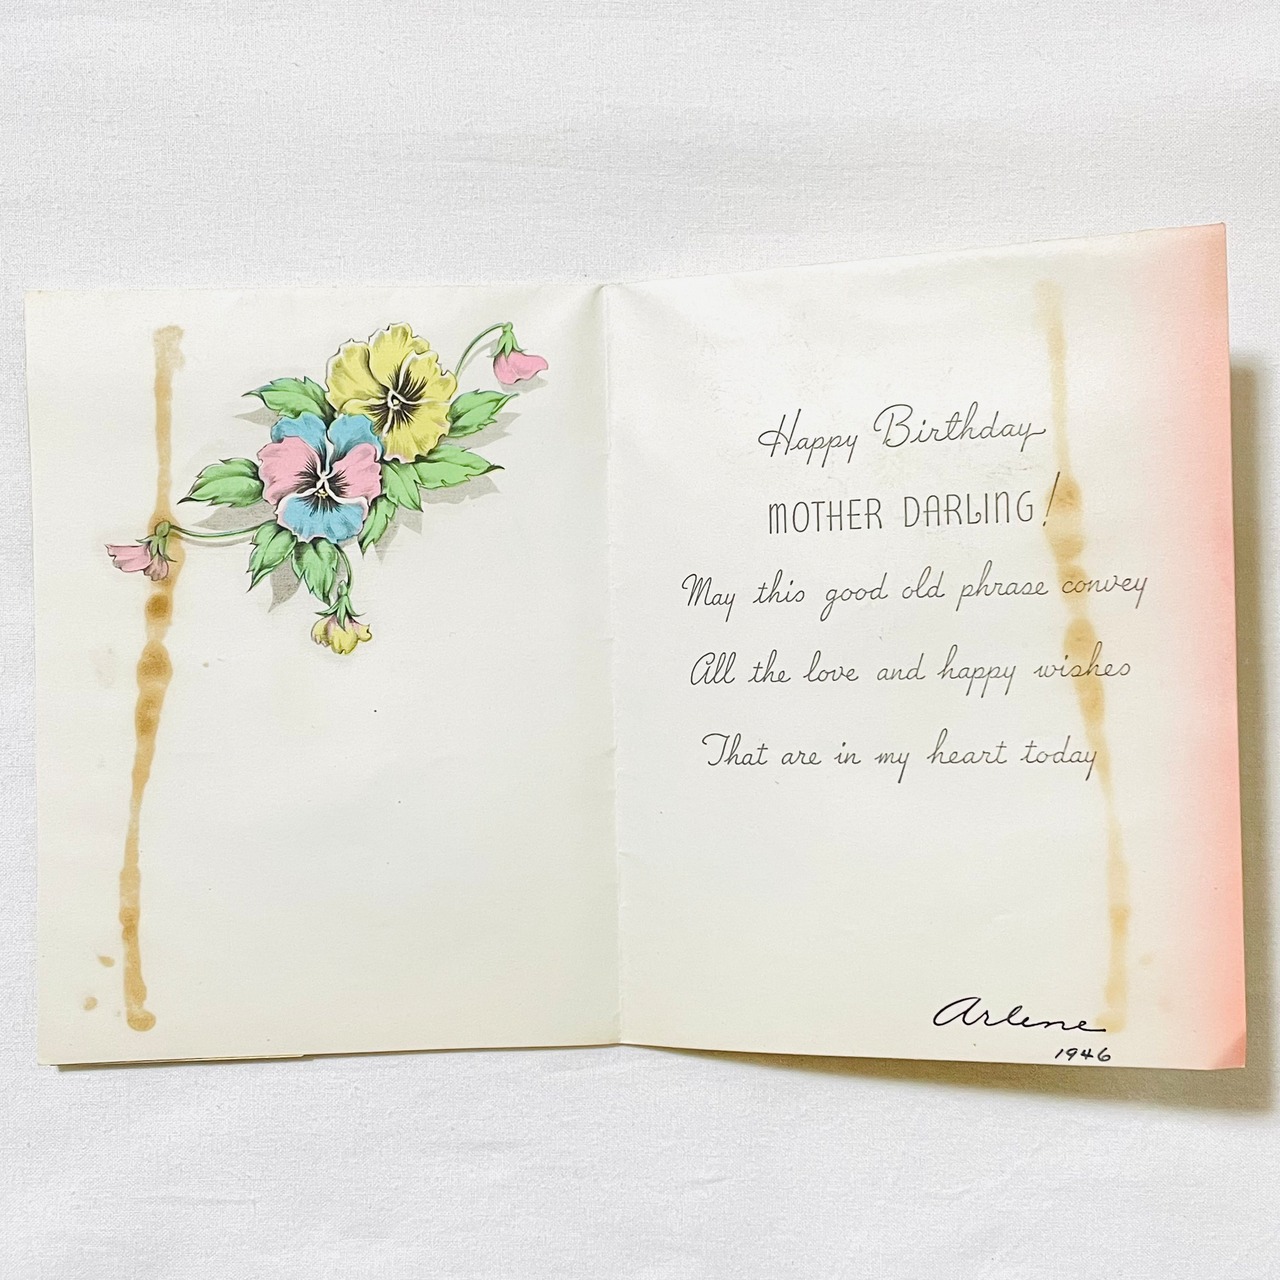 Happy Birthday
MOTHER DARLING!
May this good old phrase convey
All the love and happy wishes
That are in my heart today
Arlene
1946